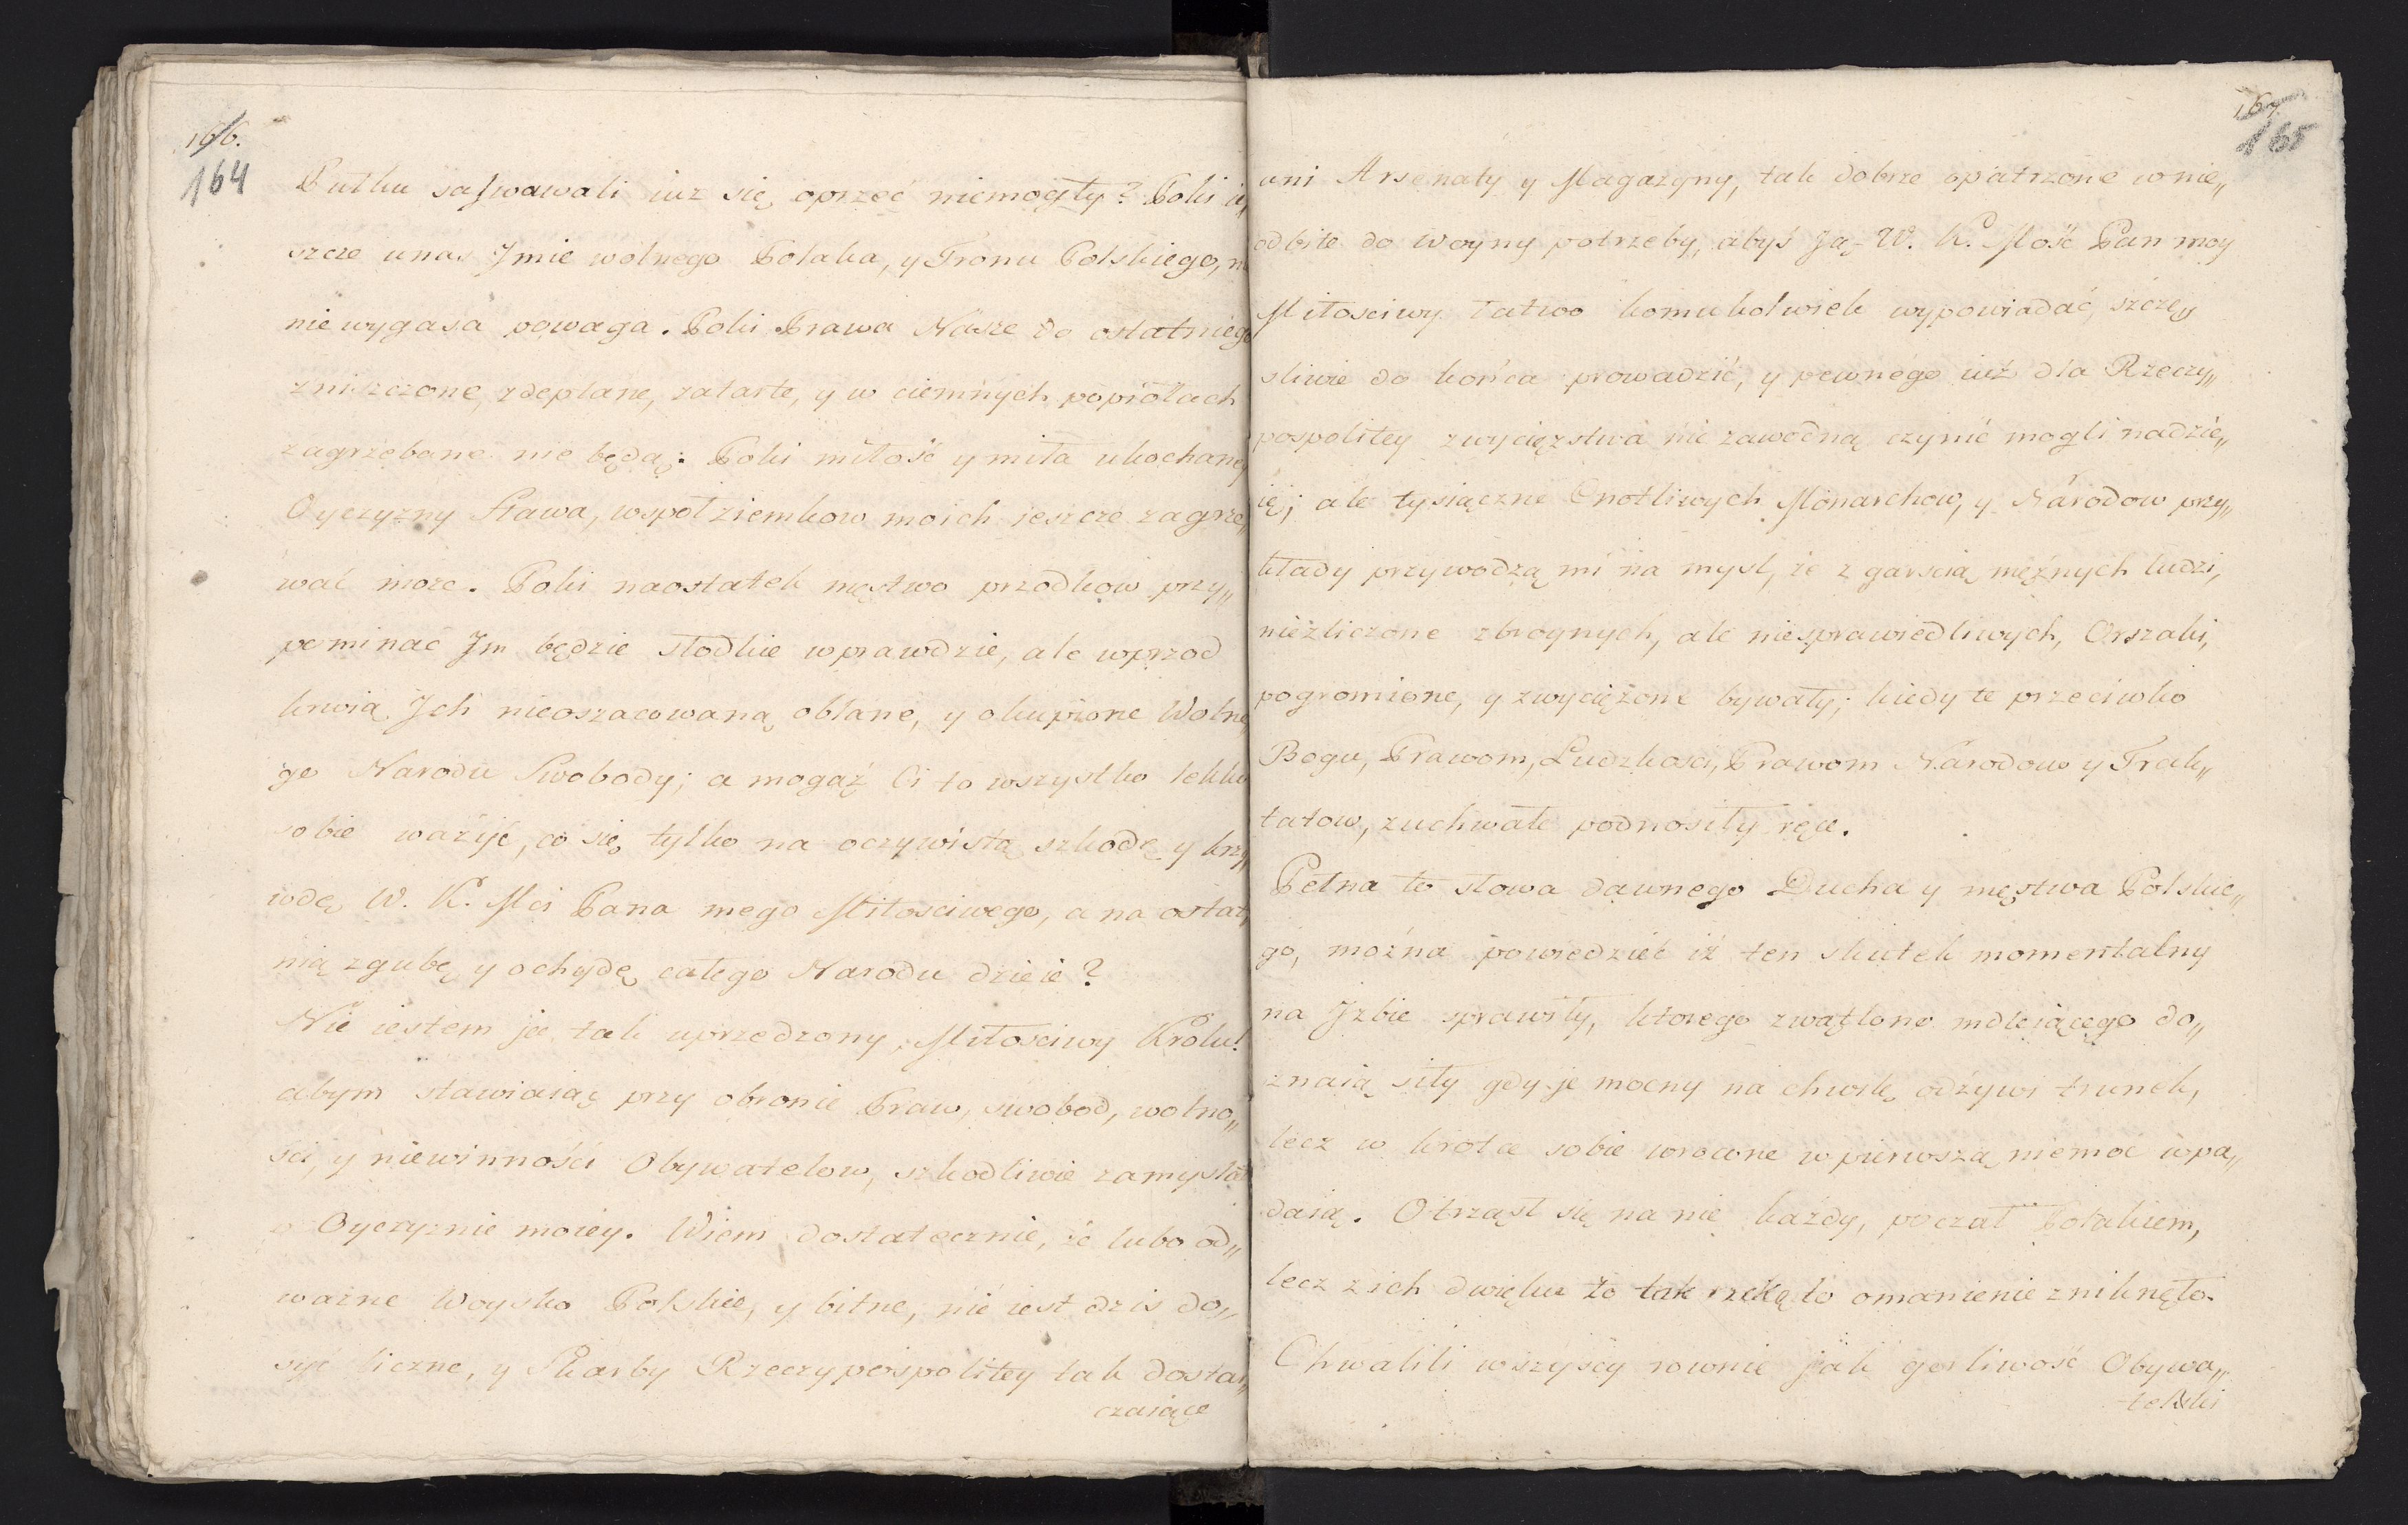 166.
164
Pułku sasławali iuż się oprzeć niemogły? Poki ie„
szcze unas Jmie wolnego Polaka, y Tronu Polskiego,
niewygasa powaga. Poki Prawa Násze do ostatniego
zniszczone, zdeptane, zatarte, y w ciemnych popiołach
zagrzebane nie będą: Poki miłość y miła ukochaney
Oyczyzny Sława, wspołziemkow moich jeszcze zagrze„
wać może. Poki naostatek męstwo przodkow przy„
pominać Jm będzie słodkie wprawdzie, ale wprzod
krwią Jch nieoszacowaną oblane, y okupione Wolne„
go Narodu Swobody; a mogąż Ci to wszystko lekko
sobie ważyć, co się tylko na oczywistą szkodę y krzy„
wdę W. K. Mci Pana mego Miłosciwego, a na ostat„
nią zgubę y ochydę całego Narodu dzieie?
Nie iestem ja tak uprzedzony, Miłosciwy Królu!
abym stawiaiąc przy obronie Praw, swobod, wolno„
ści, y niewinności Obywatelow, szkodliwie zamyslał
o Oyczyznie moiey. Wiem dostatecznie, że lubo od„
ważne Woysko Polskie, y bitne, nie iest dzis do„
syć liczne, y Skarby Rzeczypospolitey tak dostar„
czaiące
167.
165
uni Arsenały y Magazyny, tak dobrze opatrzone wnie„
odbite do woyny potrzeby, abyś Ją W. K. Mość Pan moy
Miłosciwy łatwo komukolwiek wypowiadać, szczę„
sliwie do końca prowadzić, y pewnego iuż dla Rzeczy„
pospolitey zwycięzstwa nie zawodną czynić mogli nadzie„
ię; ale tysiączne Cnotliwych Monarchow, y Národow przy„
kłady przywodzą mi na mysl, że z garscią mężnych ludzi,
niezliczone zbroynych, ale niesprawiedliwych, Orszaki,
pogromione, y zwyciężone bywały; kiedy te przeciwko
Bogu, Prawom, Ludzkosci, Prawom Národow y Trak„
tatow, zuchwałe podnosiły ręce.
Pełna te słowa dawnego Ducha y męstwa Polskie„
go, można powiedzieć iż ten skutek momentalny
na Jzbie sprawiły, ktorego zwątlone mdleiącego do„
znaią siły gdy je mocny na chwilę odżywi trunek,
lecz w krotce sobie wrocone w pierwszą niemoc wpa„
daią. Otrząsł się na nie każdy, poczał Polakiem,
lecz z ich dwięku to tak rzekę to omamienie zniknęło.
Chwalili wszyscy rownie jak gorliwość Obywa„
telski